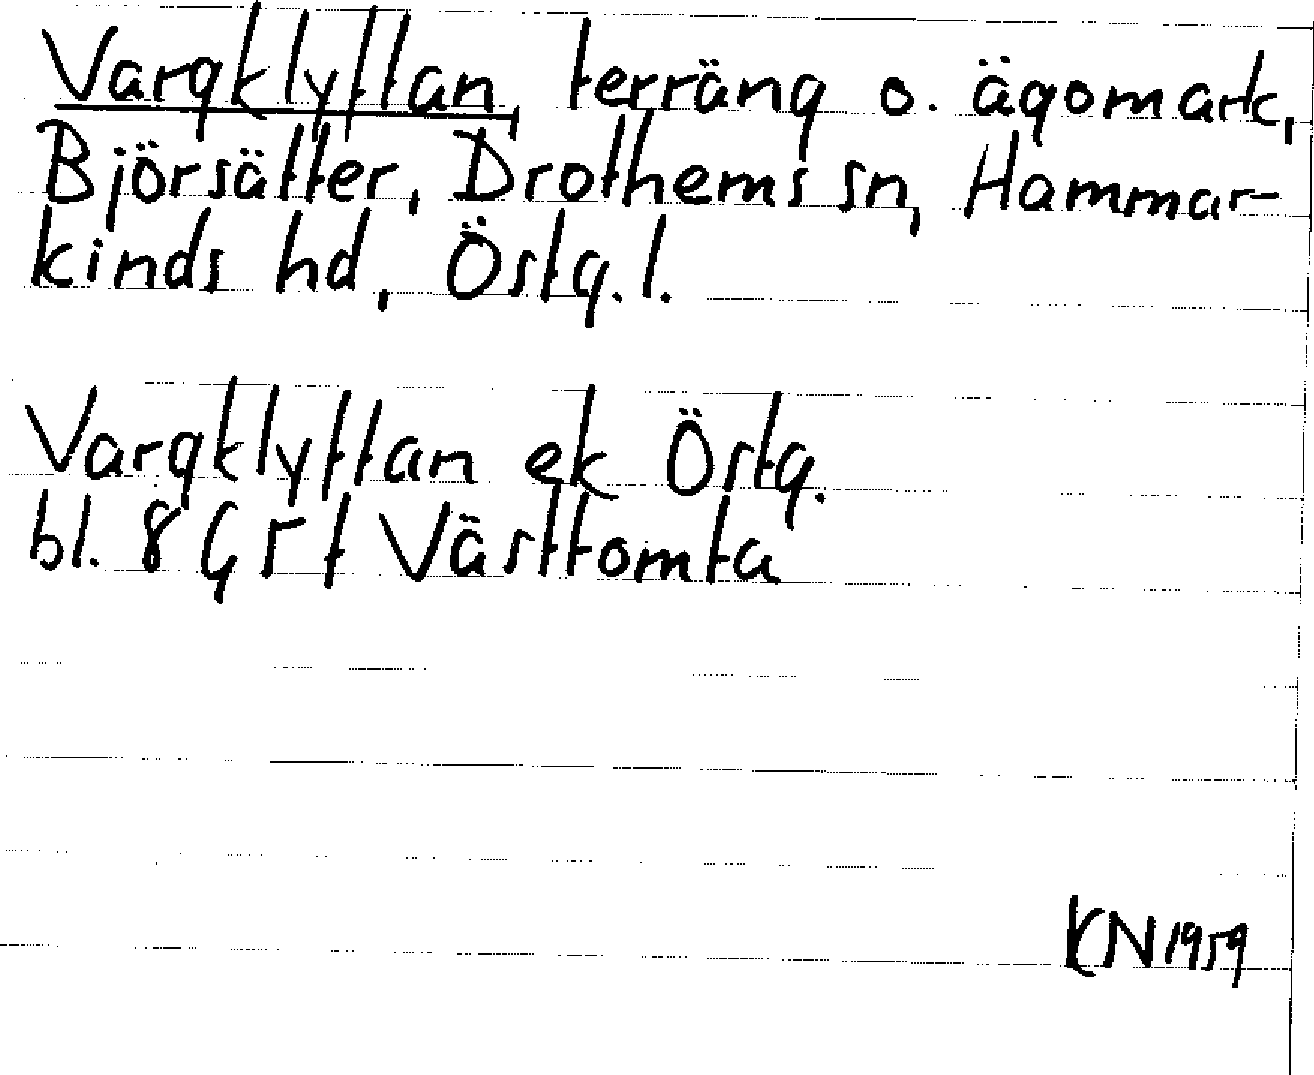 Vargklyftan, terräng o. ägomark,
Björsätter, Drothems sn, Hammar-
kinds hd, Östg. l.
Vargklyftan ek Östg.
bl. 8 G 5 f Västtomta
KN 1959